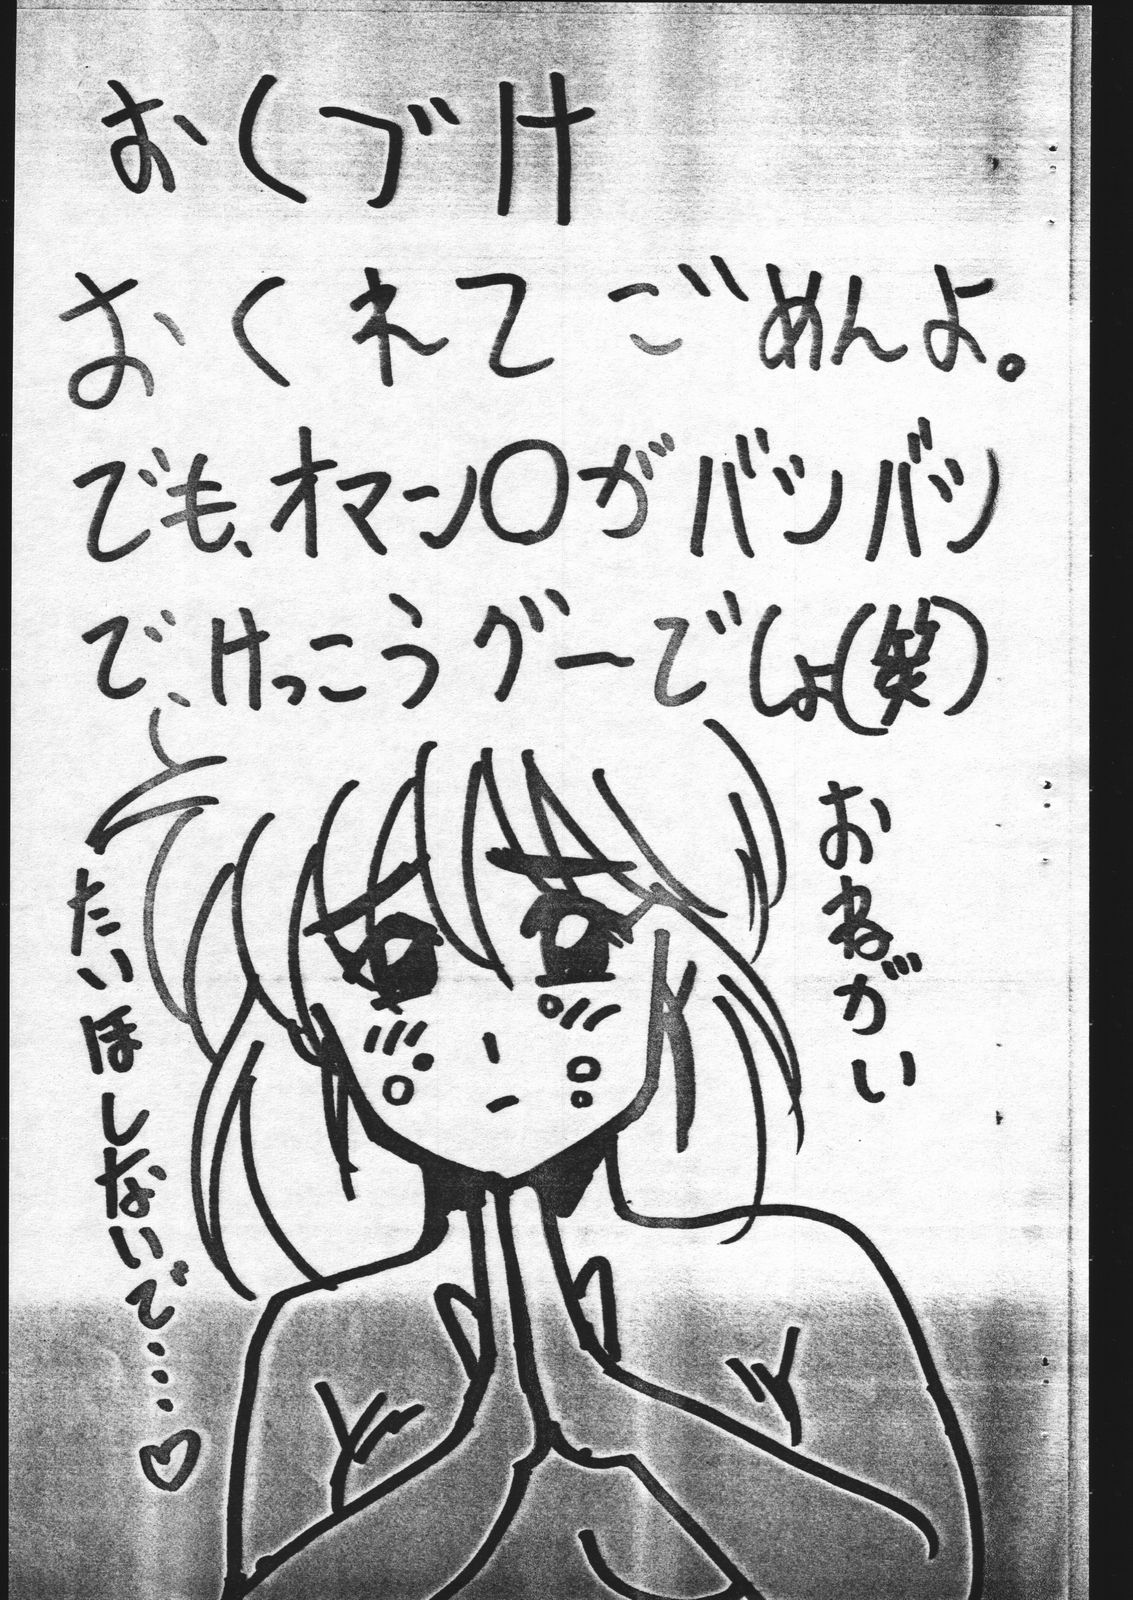 おくづけ
おくれてごめんよ。
でも、オマン〇がバンバン
で、けっこうグーでしょ(笑)
おねがい
たいほしないで……♡